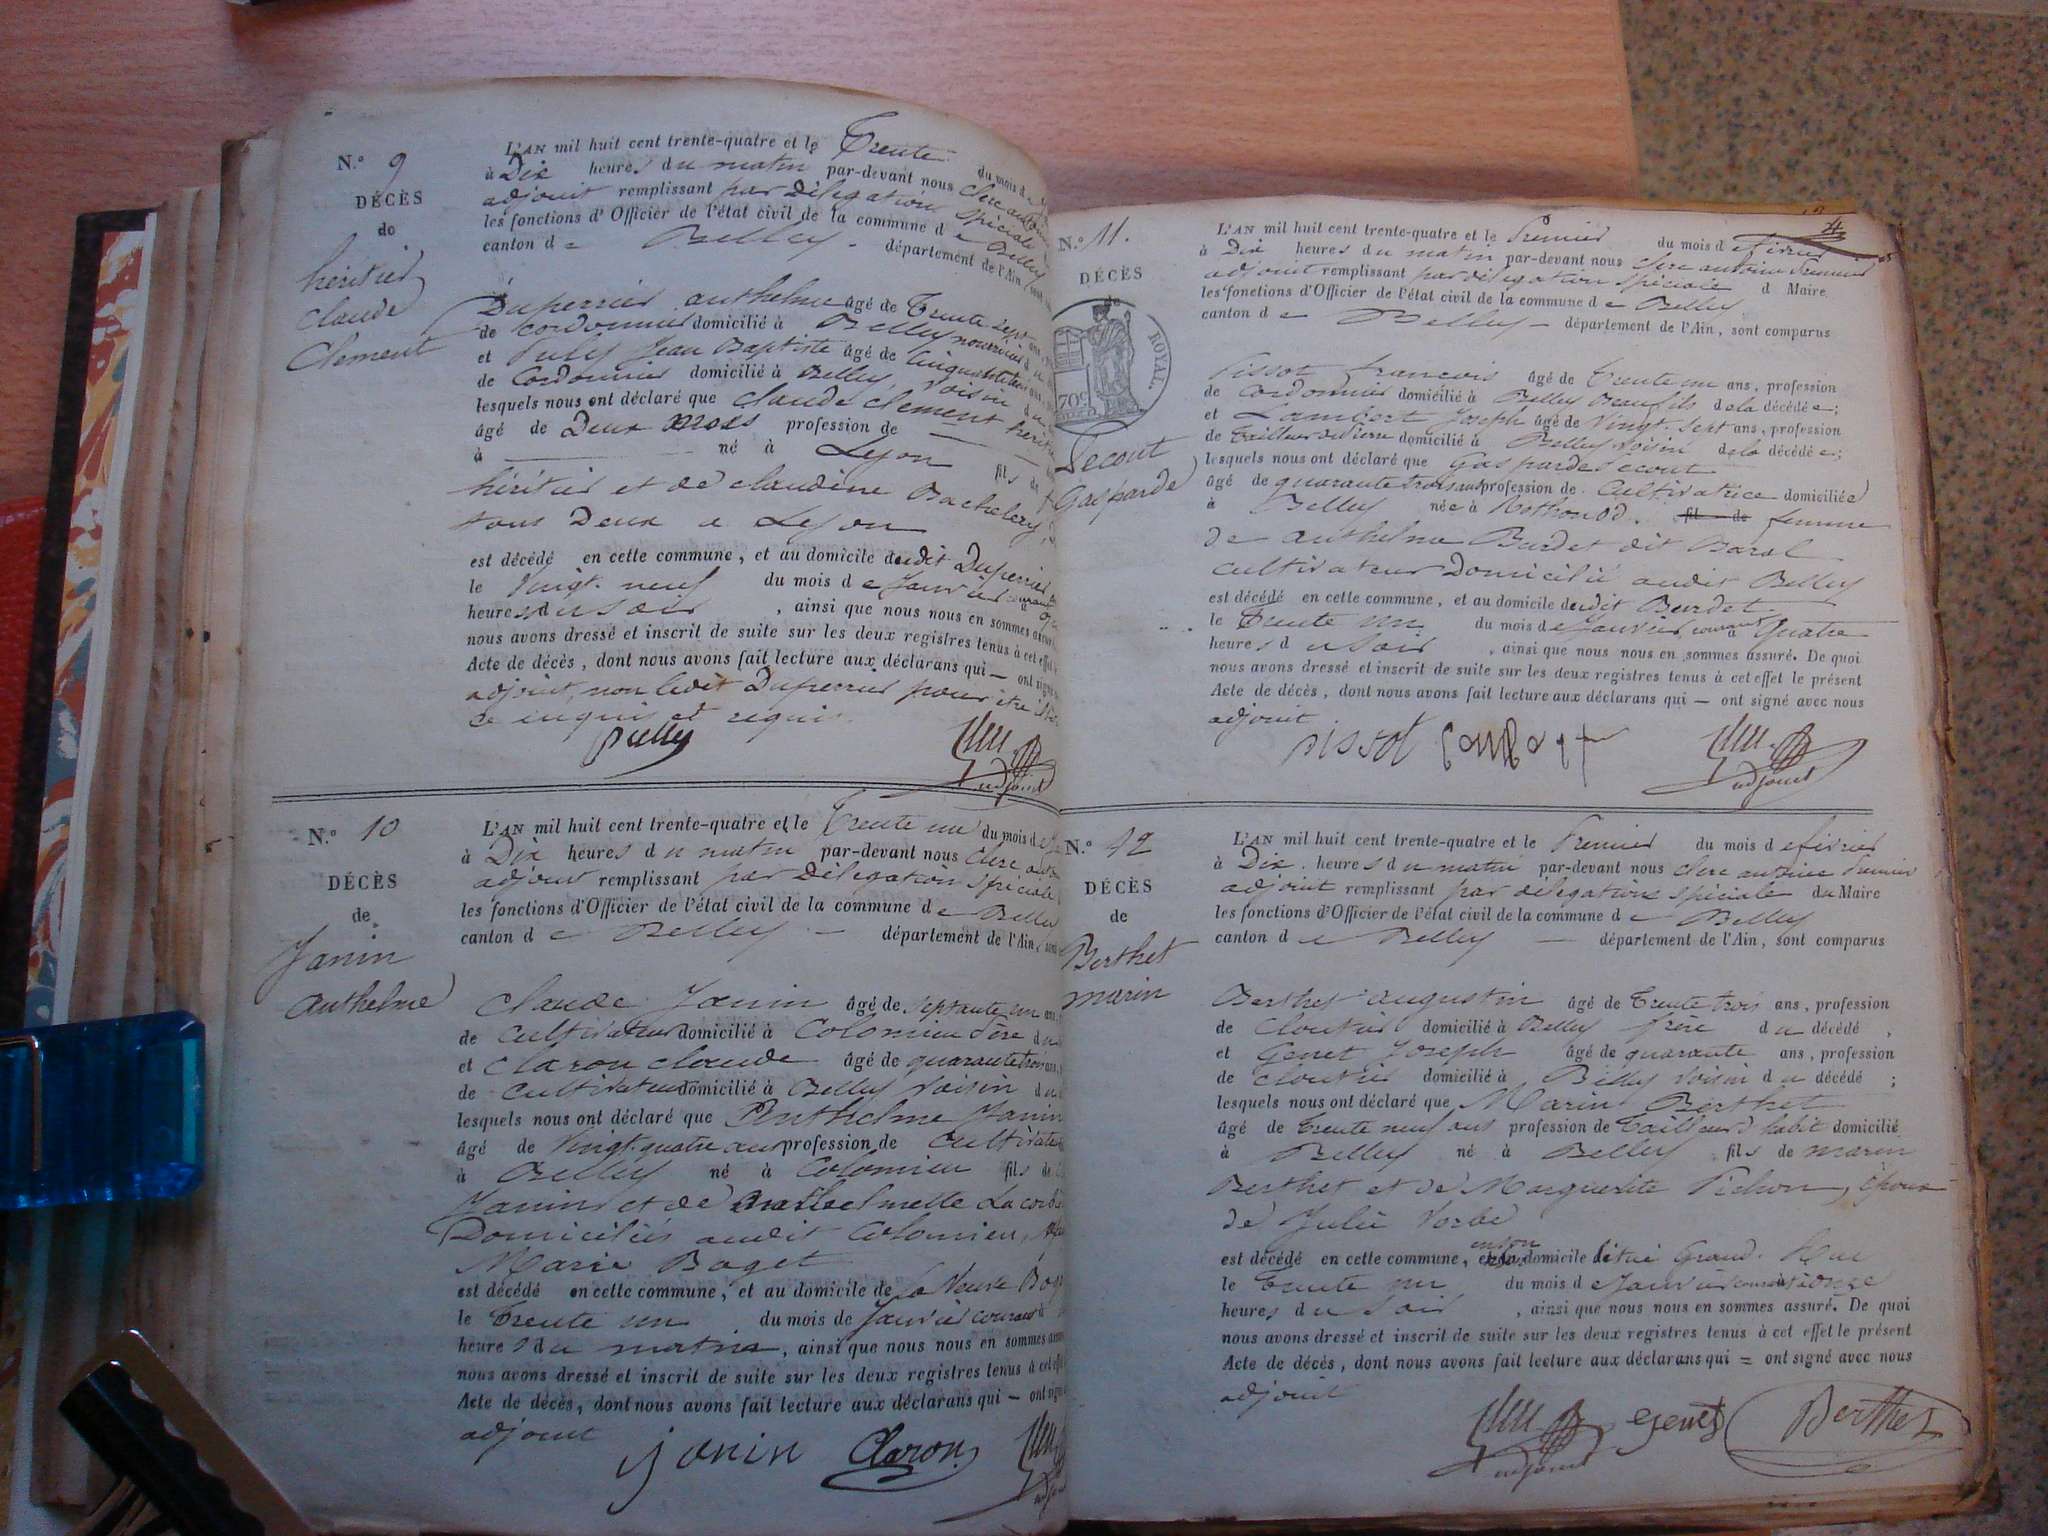 N.º 9
DÉCÈS
de
héritier
Claude
Clement
L'AN mil huit cent trente-quatre et le Trente du mois d
à Dix heures du matin par-devant nous Clerc antoine
adjoint remplissant par Délégation spéciale
les fonctions d'Officier de l'état civil de la commune de Belley
canton de Belley - département de l'Ain,
Duperrier anthelme âgé de Trente sept ans
de cordonnier domicilié à Belley nourricier
et Pully Jean Baptiste âgé de Cinquante
de Cordonnier domicilié à Belley, voisin du
lesquels nous ont déclaré que Claude Clement
âgé de Deux Mois profession de
à né à Lyon fils de
héritier et de Claudine Bachelery
tous Deux a Lyon
est décédé en cette commune, et au domicile dudit Duperrier
le Vingt neuf du mois de Janvier courant
heures du soir, ainsi que nous nous en sommes
nous avons dressé et inscrit de suite sur les deux registres tenus à cet effet
Acte de décès, dont nous avons fait lecture aux déclarans qui - ont signé
adjoint, non ledit Duperrier pour être
de enquis et requis
Pully
adjoint
N.º 10
DÉCÈS
de
Janin
anthelme
L'AN mil huit cent trente-quatre et le Trente un du mois de
à Dix heures du matin par-devant nous Clerc
adjoint remplissant par Délégation spéciale
les fonctions d'Officier de l'état civil de la commune de Belley
canton de Belley - département de l'Ain,
Claude Janin âgé de septante un ans
de cultivateur domicilié à Colomieu Père du
et Claron Claude âgé de quarante trois ans
de cultivateur domicilié à Belley voisin du
lesquels nous ont déclaré que Anthelme Janin
âgé de Vingt quatre ans profession de
à Belley né à Colomieu fils de
Janin et de
Domiciliés audit Colomieu,
Marie Boget
est décédé en cette commune, et au domicile de la Veuve
le Trente un du mois de Janvier courant à
heures du matin, ainsi que nous nous en sommes
nous avons dressé et inscrit de suite sur les deux registres tenus à cet effet
Acte de décès, dont nous avons fait lecture aux déclarans qui - ont signé
adjoint
janin Claron
N.º 11.
DÉCÈS
de
ROYAL.
70c
Secout
Gasparde
L'AN mil huit cent trente-quatre et le Premier du mois de février
à Dix heures du matin par-devant nous Clerc antoine Premier
adjoint remplissant par délégation spéciale d Maire
les fonctions d'Officier de l'état civil de la commune de Belley
canton de Belley - département de l'Ain, sont comparus
Pissot francois âgé de Trente un ans, profession
de Cordonnier domicilié à Belley beau fils de la décédée;
et Lambert Joseph âgé de Vingt sept ans, profession
de Tailleur de Pierre domicilié à Belley voisin de la décédée;
lesquels nous ont déclaré que Gasparde Secout
âgé de quarante trois ans profession de Cultivatrice domiciliée
à Belley née à Rothonod. fil de femme
de anthelme Burdet dit Baral
cultivateur Domicilié audit Belley
est décédé en cette commune, et au domicile dudit Burdet
le Trente un du mois de Janvier courant à quatre
heures du soir, ainsi que nous nous en sommes assuré. De quoi
nous avons dressé et inscrit de suite sur les deux registres tenus à cet effet le présent
Acte de décès, dont nous avons fait lecture aux déclarans qui - ont signé avec nous
adjoint
pissot
adjoint
N.º 12
DÉCÈS
de
Berthet
marin
L'AN mil huit cent trente-quatre et le Premier du mois de février
à Dix heures du matin par-devant nous Clerc antoine Premier
adjoint remplissant par délégation spéciale du Maire
les fonctions d'Officier de l'état civil de la commune de Belley
canton de Belley - département de l'Ain, sont comparus
Berthet augustin âgé de Trente trois ans, profession
de Cloutier domicilié à Belley frère du décédé,
et Genet Joseph âgé de quarante ans, profession
de Cloutier domicilié à Belley voisin du décédé;
lesquels nous ont déclaré que Marin Berthet
âgé de Trente neuf ans profession de Tailleur d'habit domicilié
à Belley né à Belley fils de marin
Berthet et de Marguerite Pichon, époux
de Julie Vorbe
est décédé en cette commune, en son domicile situé Grand Rue
le Trente un du mois de Janvier courant à onze
heures du soir, ainsi que nous nous en sommes assuré. De quoi
nous avons dressé et inscrit de suite sur les deux registres tenus à cet effet le présent
Acte de décès, dont nous avons fait lecture aux déclarans qui = ont signé avec nous
adjoint
adjoint genet Berthet